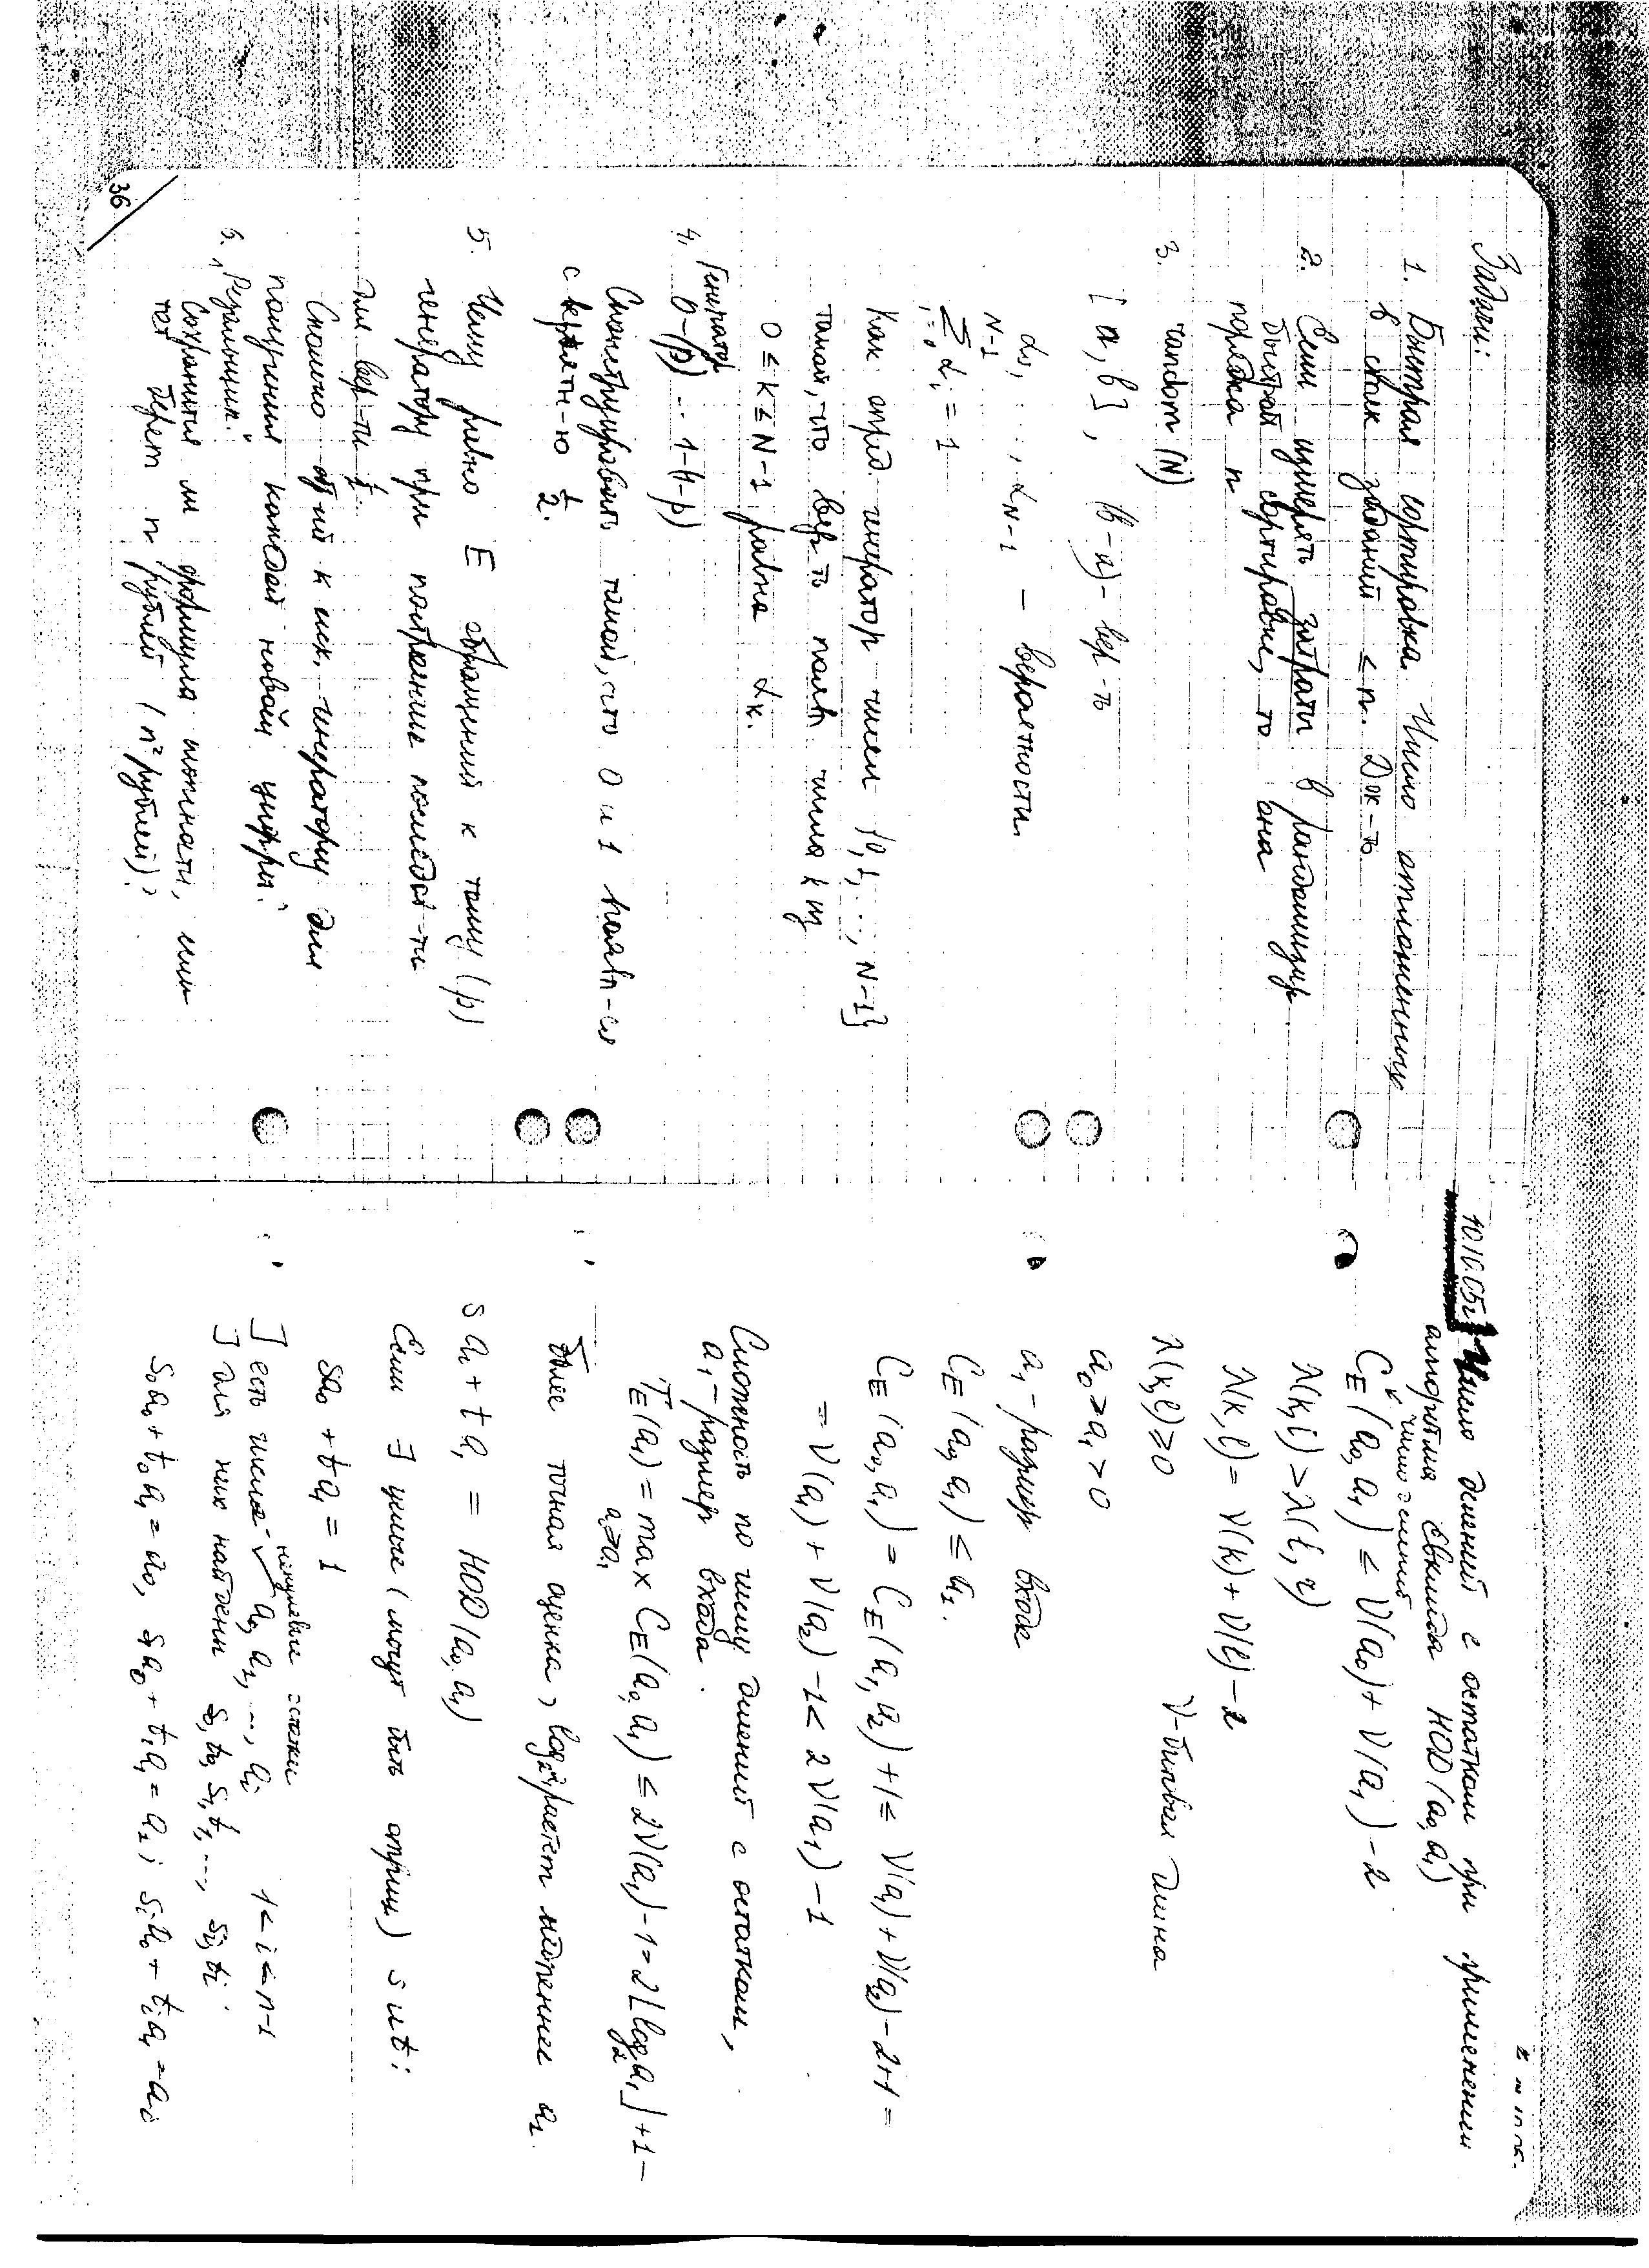 Задачи:
1. Быстрая сортировка. Число отложенных
в стек заданий ≤ n. Док-ть
2. Если измерять затраты в рандомизир
быстрой сортировке, то она
порядка n
3. random (N)
[a, b], (b-a) - вер-ть
α₁, ..., α_{N-1} - вероятности.
∑_{i=0}^{N-1} α_i = 1
Как опред. генератор чисел {0, 1, ..., N-1}
такой, что вер-ть появл числа k из
0 ≤ k ≤ N-1 равна α_k.
4. Генератор
0-(p) .. 1-(1-p)
Сконструировать такой, что 0 и 1 появл-ся
с вероятн-ю 1/2.
5. Чему равно E обращений к тому (p)
генератору при построение последов-ти
для вер-ти 1/2.
Сколько обр-ий к исх. генератору для
получения каждой новой цифры?
6. "Резальщик"
Сохранится ли формула стоимости, если
тот берет n рублей (n² рублей)?
36
10.10.05г. Число делений с остатком при применении
алгоритма Евклида НОД(a₀, a₁)
число делений
C_E(a₀, a₁) ≤ ν(a₀) + ν(a₁) - 2
λ(k, l) > λ(l, r)
λ(k, l) = ν(k) + ν(l) - 2
λ(k, l) ≥ 0 ν - битовая длина
a₀ > a₁ > 0
a₁ - размер входа
C_E(a₀, a₁) ≤ a₁.
C_E(a₀, a₁) = C_E(a₁, a₂) + 1 ≤ ν(a₁) + ν(a₂) - 2 + 1 =
= ν(a₁) + ν(a₂) - 1 < 2ν(a₁) - 1
Сложность по числу делений с остатком,
a₁ - размер входа.
T_E(a₁) = max_{a₀>a₁} C_E(a₀, a₁) ≤ 2ν(a₁) - 1 = 2⌊log₂a₁⌋ + 1 -
более точная оценка, log₂a₁ растет медленнее a₁.
sa₀ + ta₁ = НОД(a₀, a₁)
Если ∃ целые (могут быть отриц) s и t:
sa₀ + ta₁ = 1
ненулевые остатки
∃ есть числа a₀, a₁, ..., a_i 1 < i < n-1
∃ для них найдены s₀, t₀, s₁, t₁, ..., s_i, t_i:
s₀a₀ + t₀a₁ = a₀, s₁a₀ + t₁a₁ = a₁; s_ia₀ + t_ia₁ = a_i